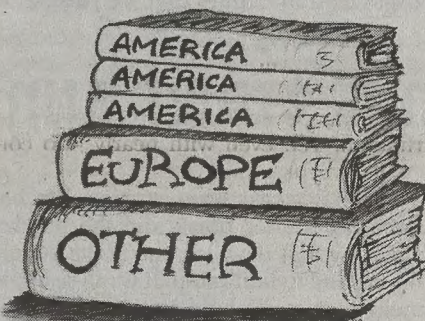 AMERICA
AMERICA
AMERICA
EUROPE
OTHER